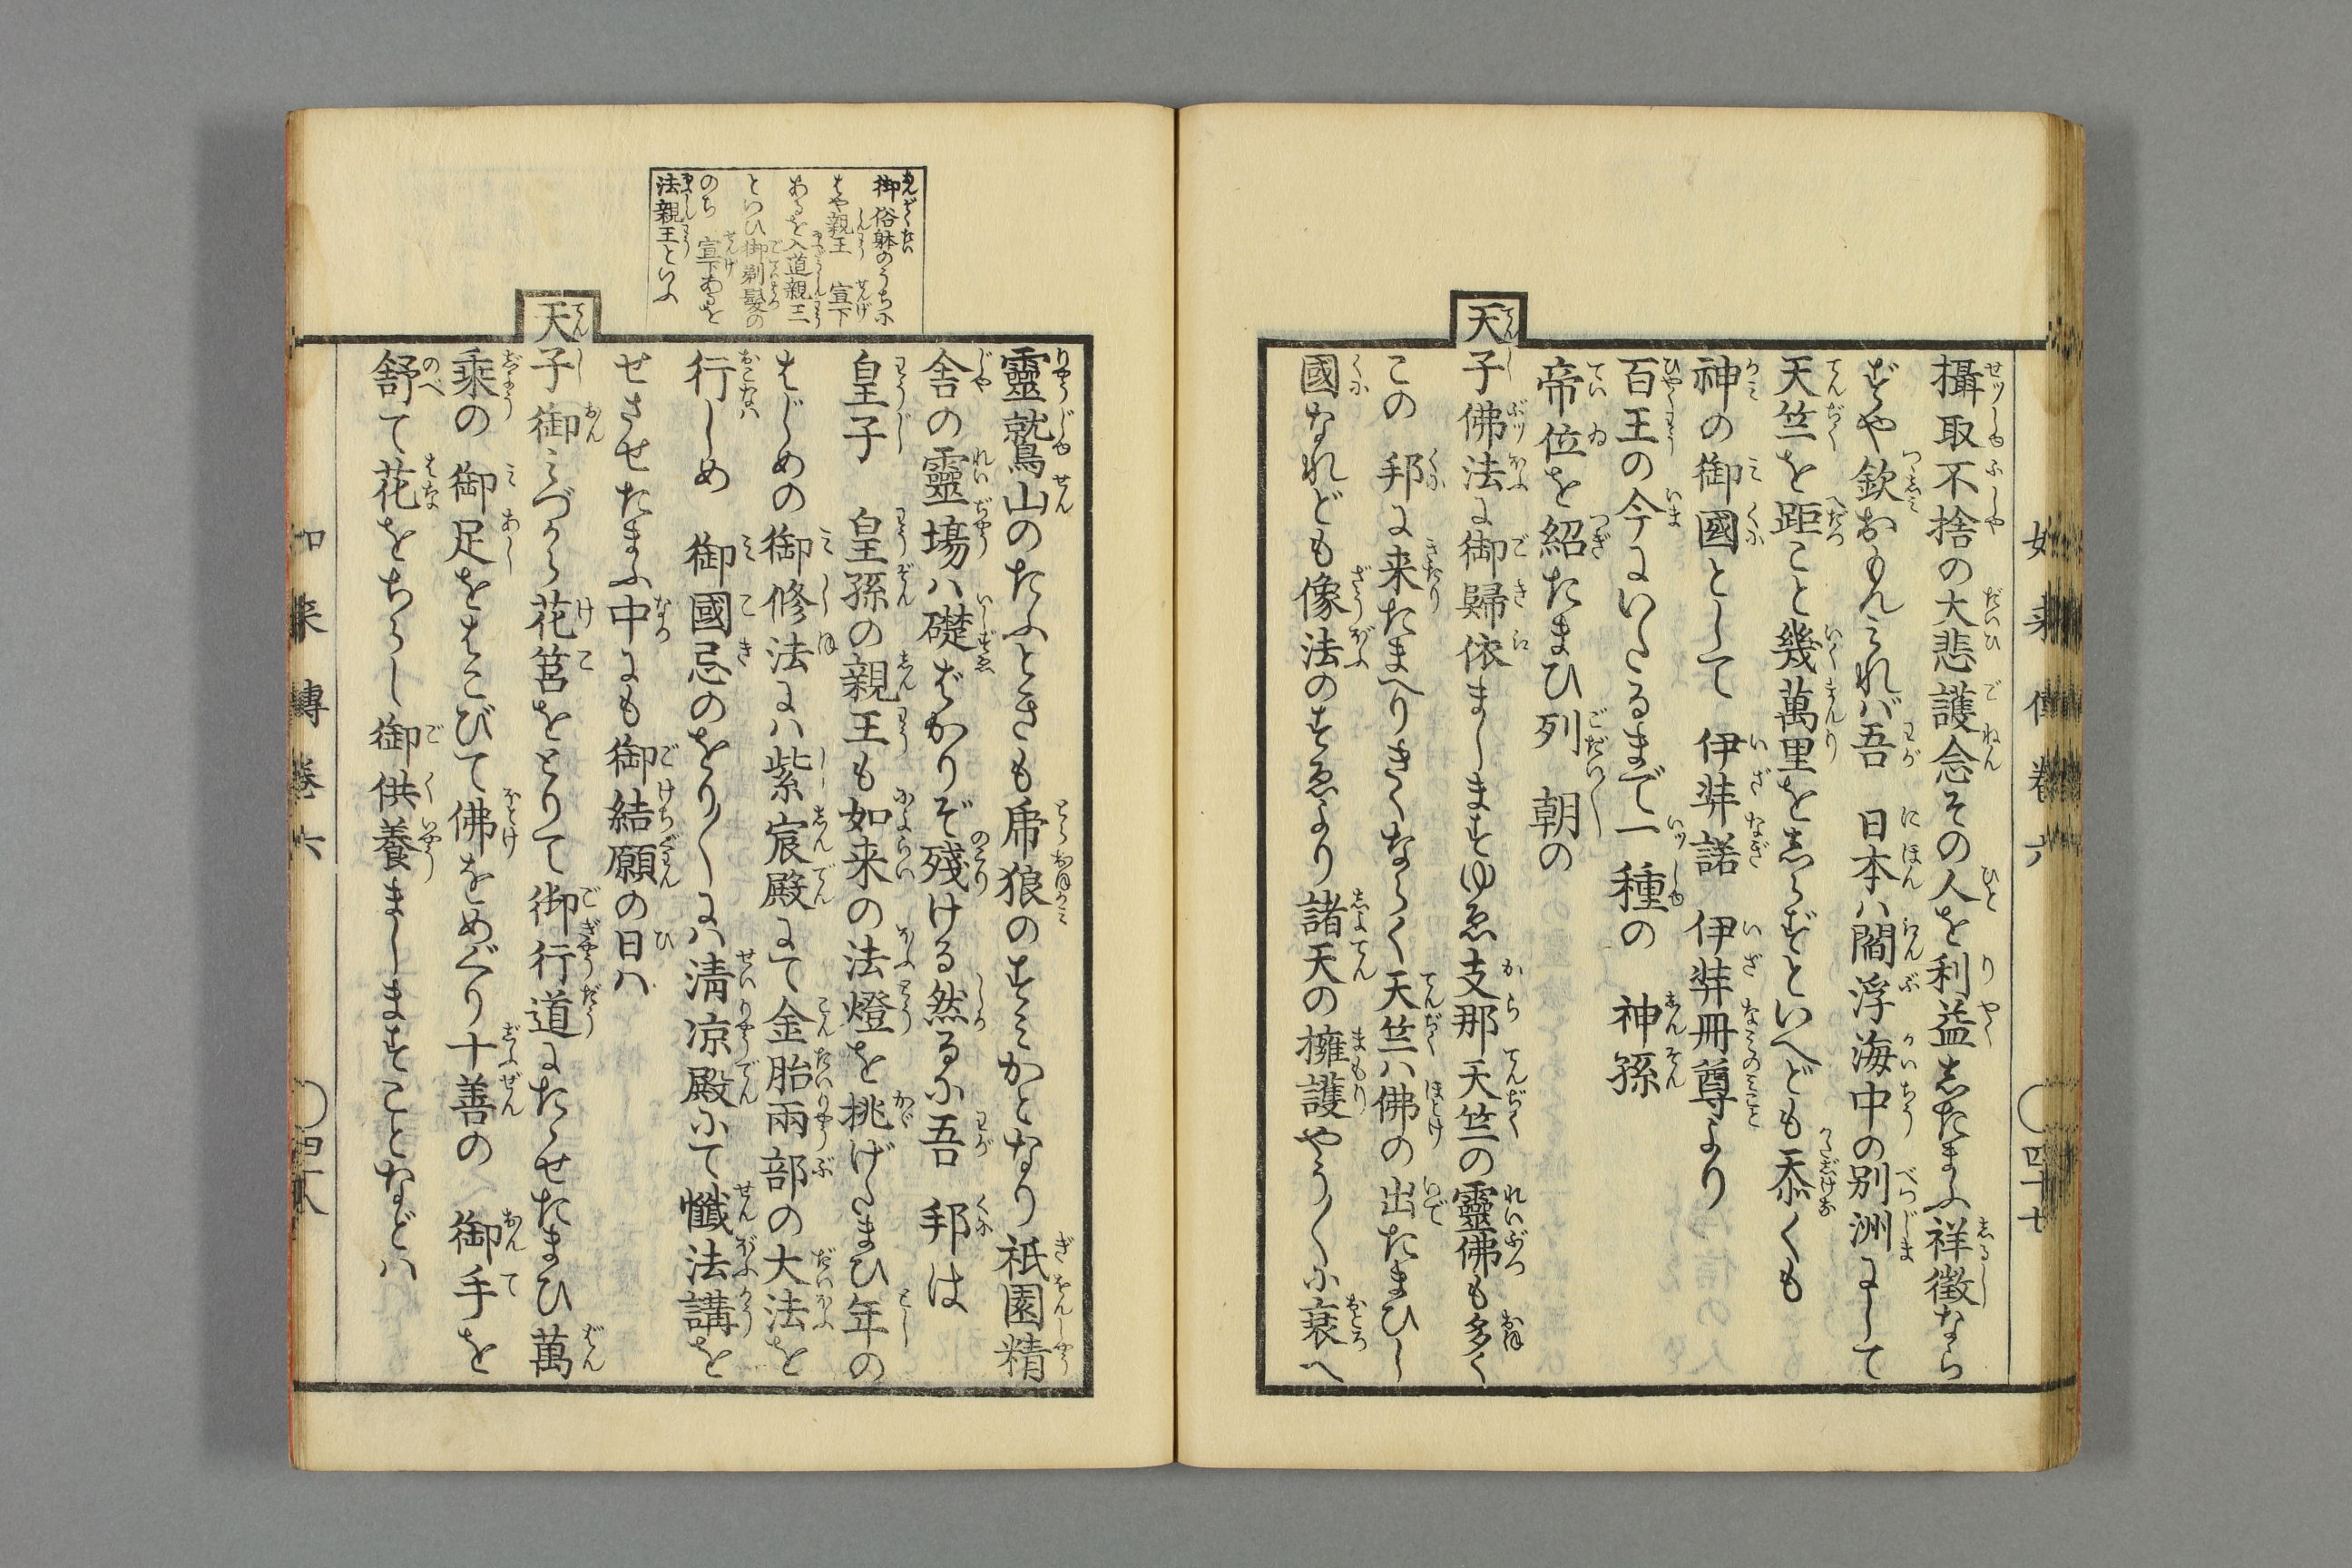 如来傳巻六
四十七
攝取不捨の大悲護念その人を利益したまふ祥徴なら
ずや欽おもんみれば吾 日本ハ閻浮海中の別洲にして
天竺を距こと幾萬里をしらずといへども忝くも
神の御國として 伊弉諾 伊弉冊尊より
百王の今にいたるまで一種の 神孫
帝位を紹たまひ列 朝の
天子佛法に御歸依ましますゆゑ支那天竺の靈佛も多く
この 邦に来たまへりきくならく天竺ハ佛の出たまひし
國なれども像法のすゑより諸天の擁護やう〳〵に衰へ
御俗躰のうちに
はや親王 宣下
あるを入道親王
といひ御剃髮の
のち 宣下あるを
法親王といふ
靈鷲山のたふときも虎狼のすみかとなり祇園精
舎の靈場ハ礎ばかりぞ殘ける然るに吾 邦は
皇子 皇孫の親王も如来の法燈を挑げたまひ年の
はじめの御修法にハ紫宸殿にて金胎兩部の大法を
行しめ 御國忌のをり〳〵にハ清凉殿にて懺法講を
せさせたまふ中にも御結願の日ハ
天子御みづから花筥をとりて御行道にたゝせたまひ萬
乘の 御足をはこびて佛をめぐり十善の 御手を
舒て花をちらし御供養ましますことなどハ
如来傳巻六
四十八